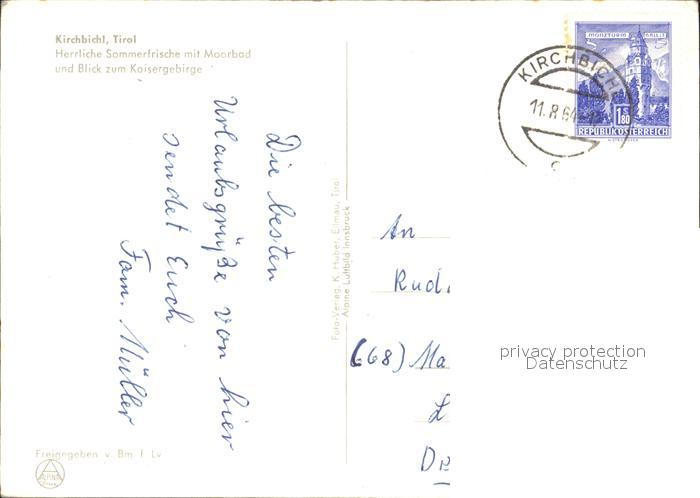 Kirchbichl, Tirol
Herrliche Sommerfrische mit Moorbad
und Blick zum Kaisergebirge
Die besten
Urlaubsgrüße von hier
sendet Euch
Fam. Müller
Freigegeben v. Bm. f. Lv
ALPINA
Foto-Verlag, K. Huber, Ellmau, Tirol
Alpine Luftbild Innsbruck
MÜNZTURM HALL I.T.
S 1.80
REPUBLIK ÖSTERREICH
KIRCHBICHL
11.8.64-12
c
An
Rud
(668) Ma
L
De
privacy protection
Datenschutz